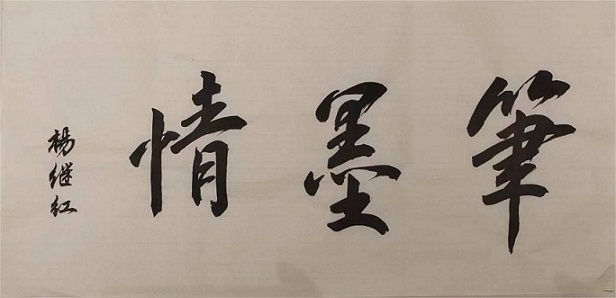 筆墨情
楊继红